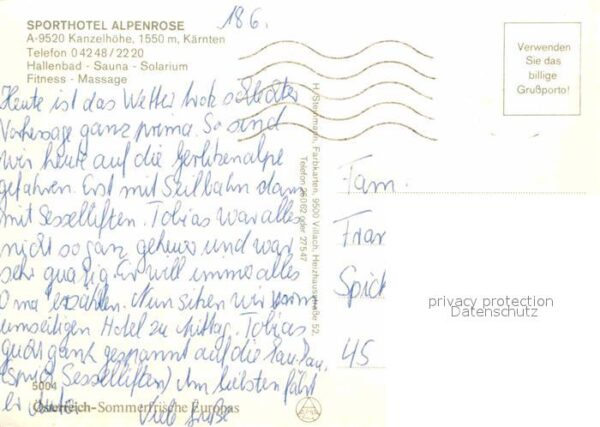 SPORTHOTEL ALPENROSE
A-9520 Kanzelhöhe, 1550 m, Kärnten
Telefon 0 42 48 / 22 20
Hallenbad - Sauna - Solarium
Fitness - Massage
186.
Verwenden
Sie das
billige
Grußporto!
Heute ist das Wetter trotz schlechter
Vorhersage ganz prima. So sind
wir heute auf die Gerlitzenalpe
gefahren. Erst mit Seilbahn dann
mit Sesselliften. Tobias war alles
nicht so ganz geheuer und war
sehr Er will immer alles
Oma erzählen. Nun sitzen wir vorm
umseitigen Hotel zu Mittag. Tobias
guckt ganz gespannt auf die
Sesselliften) Am liebsten fährt
er
Viele Grüße
H. Steurmann, Farbkarten, 9500 Villach, Heizhausstraße 52,
Telefon oder 27547
Fam.
Spick
45
privacy protection
Datenschutz
5004
Österreich-Sommerfrische Europas